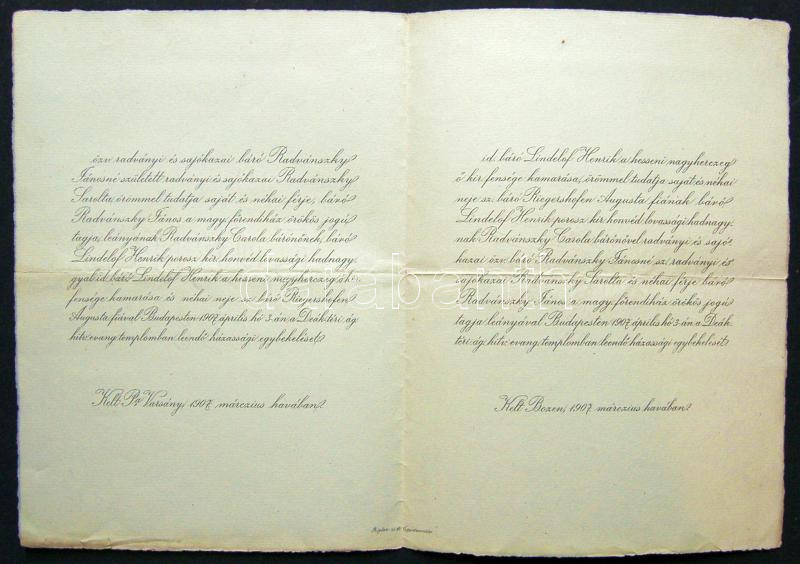 özv. radványi és sajókazai báró Radvánszky
Jánosné született radványi és sajókazai Radvánszky
Sarolta, örömmel tudatja saját és néhai férje, báró
Radvánszky János a magy. főrendiház örökös jogú
tagja, leányának Radvánszky Carola bárónőnek, báró
Lindelof Henrik porosz kir. honvéd lovassági hadnagy-
gyal id. báró Lindelof Henrik a hesseni nagyherczeg ő k.
fensége kamarása és néhai neje sz. báró Riegershofen
Augusta fiával Budapesten 1907. április hó 3-án a Deák-téri ág.
hitv. evang. templomban leendő házassági egybekelését.
Kelt P. Varsány, 1907. márczius havában.
id. báró Lindelof Henrik a hesseni nagyherczeg
ő kir. fensége kamarása, örömmel tudatja saját és néhai
neje sz. báró Riegershofen Augusta fiának báró
Lindelof Henrik porosz kir. honvéd lovassági hadnagy-
nak Radvánszky Carola bárónővel radványi és sajó-
kazai özv. báró Radvánszky Jánosné sz. radványi és
sajókazai Radvánszky Sarolta és néhai férje báró
Radvánszky János a magy. főrendiház örökös jogú
tagja leányával Budapesten 1907. április hó 3-án a Deák-
téri ág. hitv. evang. templomban leendő házassági egybekelését.
Kelt Bozen, 1907. márczius havában.